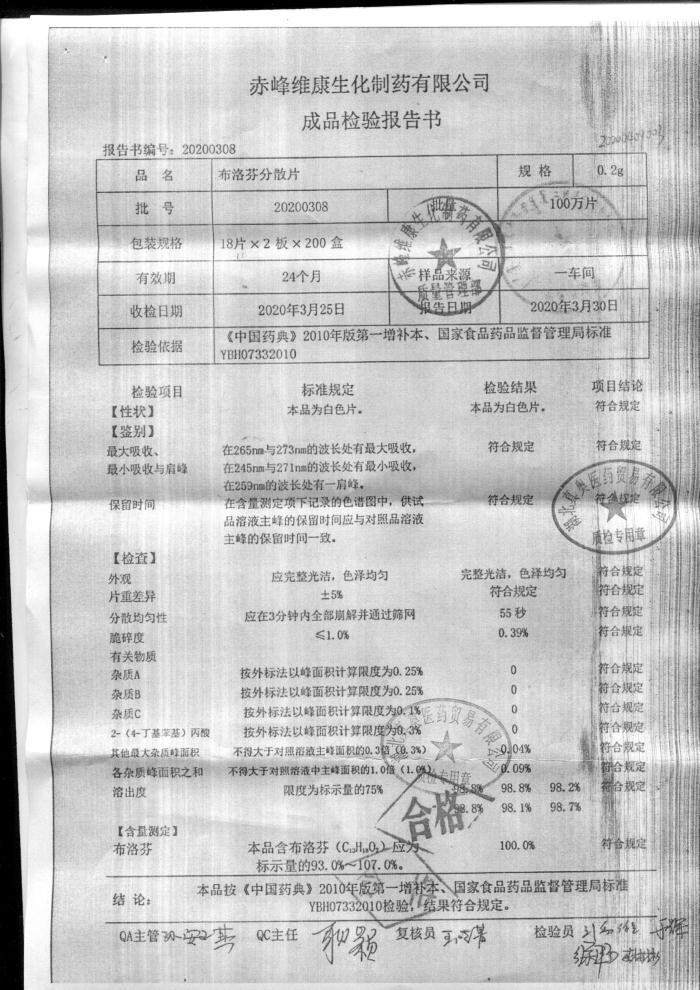 赤峰维康生化制药有限公司
成品检验报告书
报告书编号：20200308
品 名 布洛芬分散片 规 格 0.2g
批 号 20200308 批量 100万片
包装规格 18片×2 板×200 盒
有效期 24个月 样品来源 一车间
收检日期 2020年3月25日 报告日期 2020年3月30日
检验依据 《中国药典》2010年版第一增补本、国家食品药品监督管理局标准
YBH07332010
检验项目 标准规定 检验结果 项目结论
【性状】 本品为白色片。 本品为白色片。 符合规定
【鉴别】
最大吸收、 在265nm与273nm的波长处有最大吸收， 符合规定 符合规定
最小吸收与肩峰 在245nm与271nm的波长处有最小吸收，
在259nm的波长处有一肩峰。
保留时间 在含量测定项下记录的色谱图中，供试 符合规定 符合规定
品溶液主峰的保留时间应与对照品溶液
主峰的保留时间一致。
【检查】
外观 应完整光洁，色泽均匀 完整光洁，色泽均匀 符合规定
片重差异 ±5% 符合规定 符合规定
分散均匀性 应在3分钟内全部崩解并通过筛网 55 秒 符合规定
脆碎度 ≤1.0% 0.39% 符合规定
有关物质
杂质A 按外标法以峰面积计算限度为0.25% 0 符合规定
杂质B 按外标法以峰面积计算限度为0.25% 0 符合规定
杂质C 按外标法以峰面积计算限度为0.1% 0 符合规定
2-（4-丁基苯基）丙酸 按外标法以峰面积计算限度为0.3% 0 符合规定
其他最大杂质峰面积 不得大于对照溶液主峰面积的0.3倍（0.3%） 0.04% 符合规定
各杂质峰面积之和 不得大于对照溶液中主峰面积的1.0倍（1.0%） 0.09% 符合规定
溶出度 限度为标示量的75% 98.8% 98.8% 98.2% 符合规定
98.8% 98.1% 98.7%
【含量测定】
布洛芬 本品含布洛芬（C₁₃H₁₈O₂）应为 100.0% 符合规定
标示量的93.0%～107.0%。
结 论： 本品按《中国药典》2010年版第一增补本、国家食品药品监督管理局标准
YBH07332010检验，结果符合规定。
QA主管 QC主任 复核员 检验员
赤峰维康生化制药有限公司
质量管理部
医药贸易有限公司
质检专用章
医药贸易有限公司
质检专用章
合格